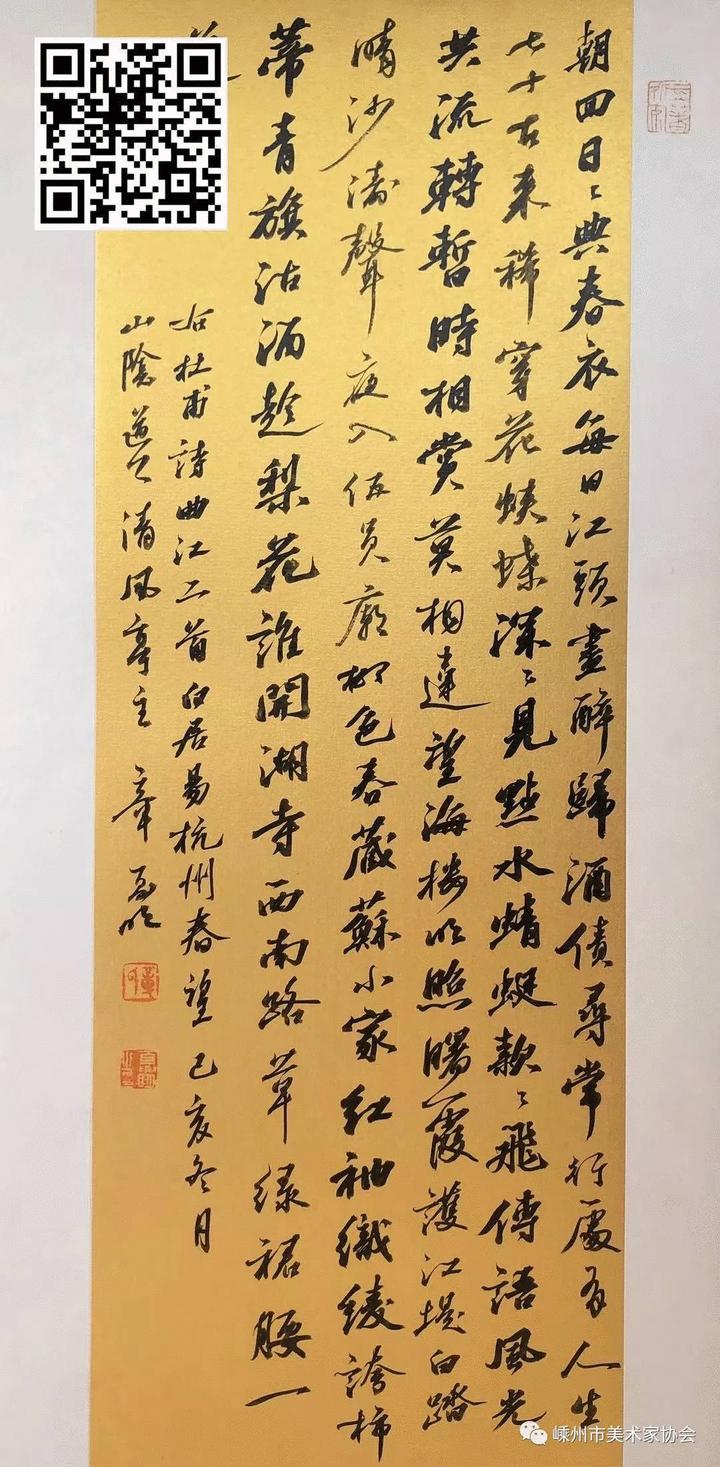 朝回日〻典春衣每日江頭盡醉歸酒債尋常行處有人生
七十古来稀穿花蛺蝶深〻見點水蜻蜓款〻飛傳語風光
共流轉暫時相赏莫相違望海樓明照曙霞護江堤白踏
晴沙濤聲夜入伍員廟柳色春藏蘇小家紅袖織綾誇柿
蒂青旗沽酒趁梨花誰開湖寺西南路草綠裙腰一
右杜甫詩曲江二首白居易杭州春望己亥冬月
山陰道上清風亭主章
嵊州市美术家协会